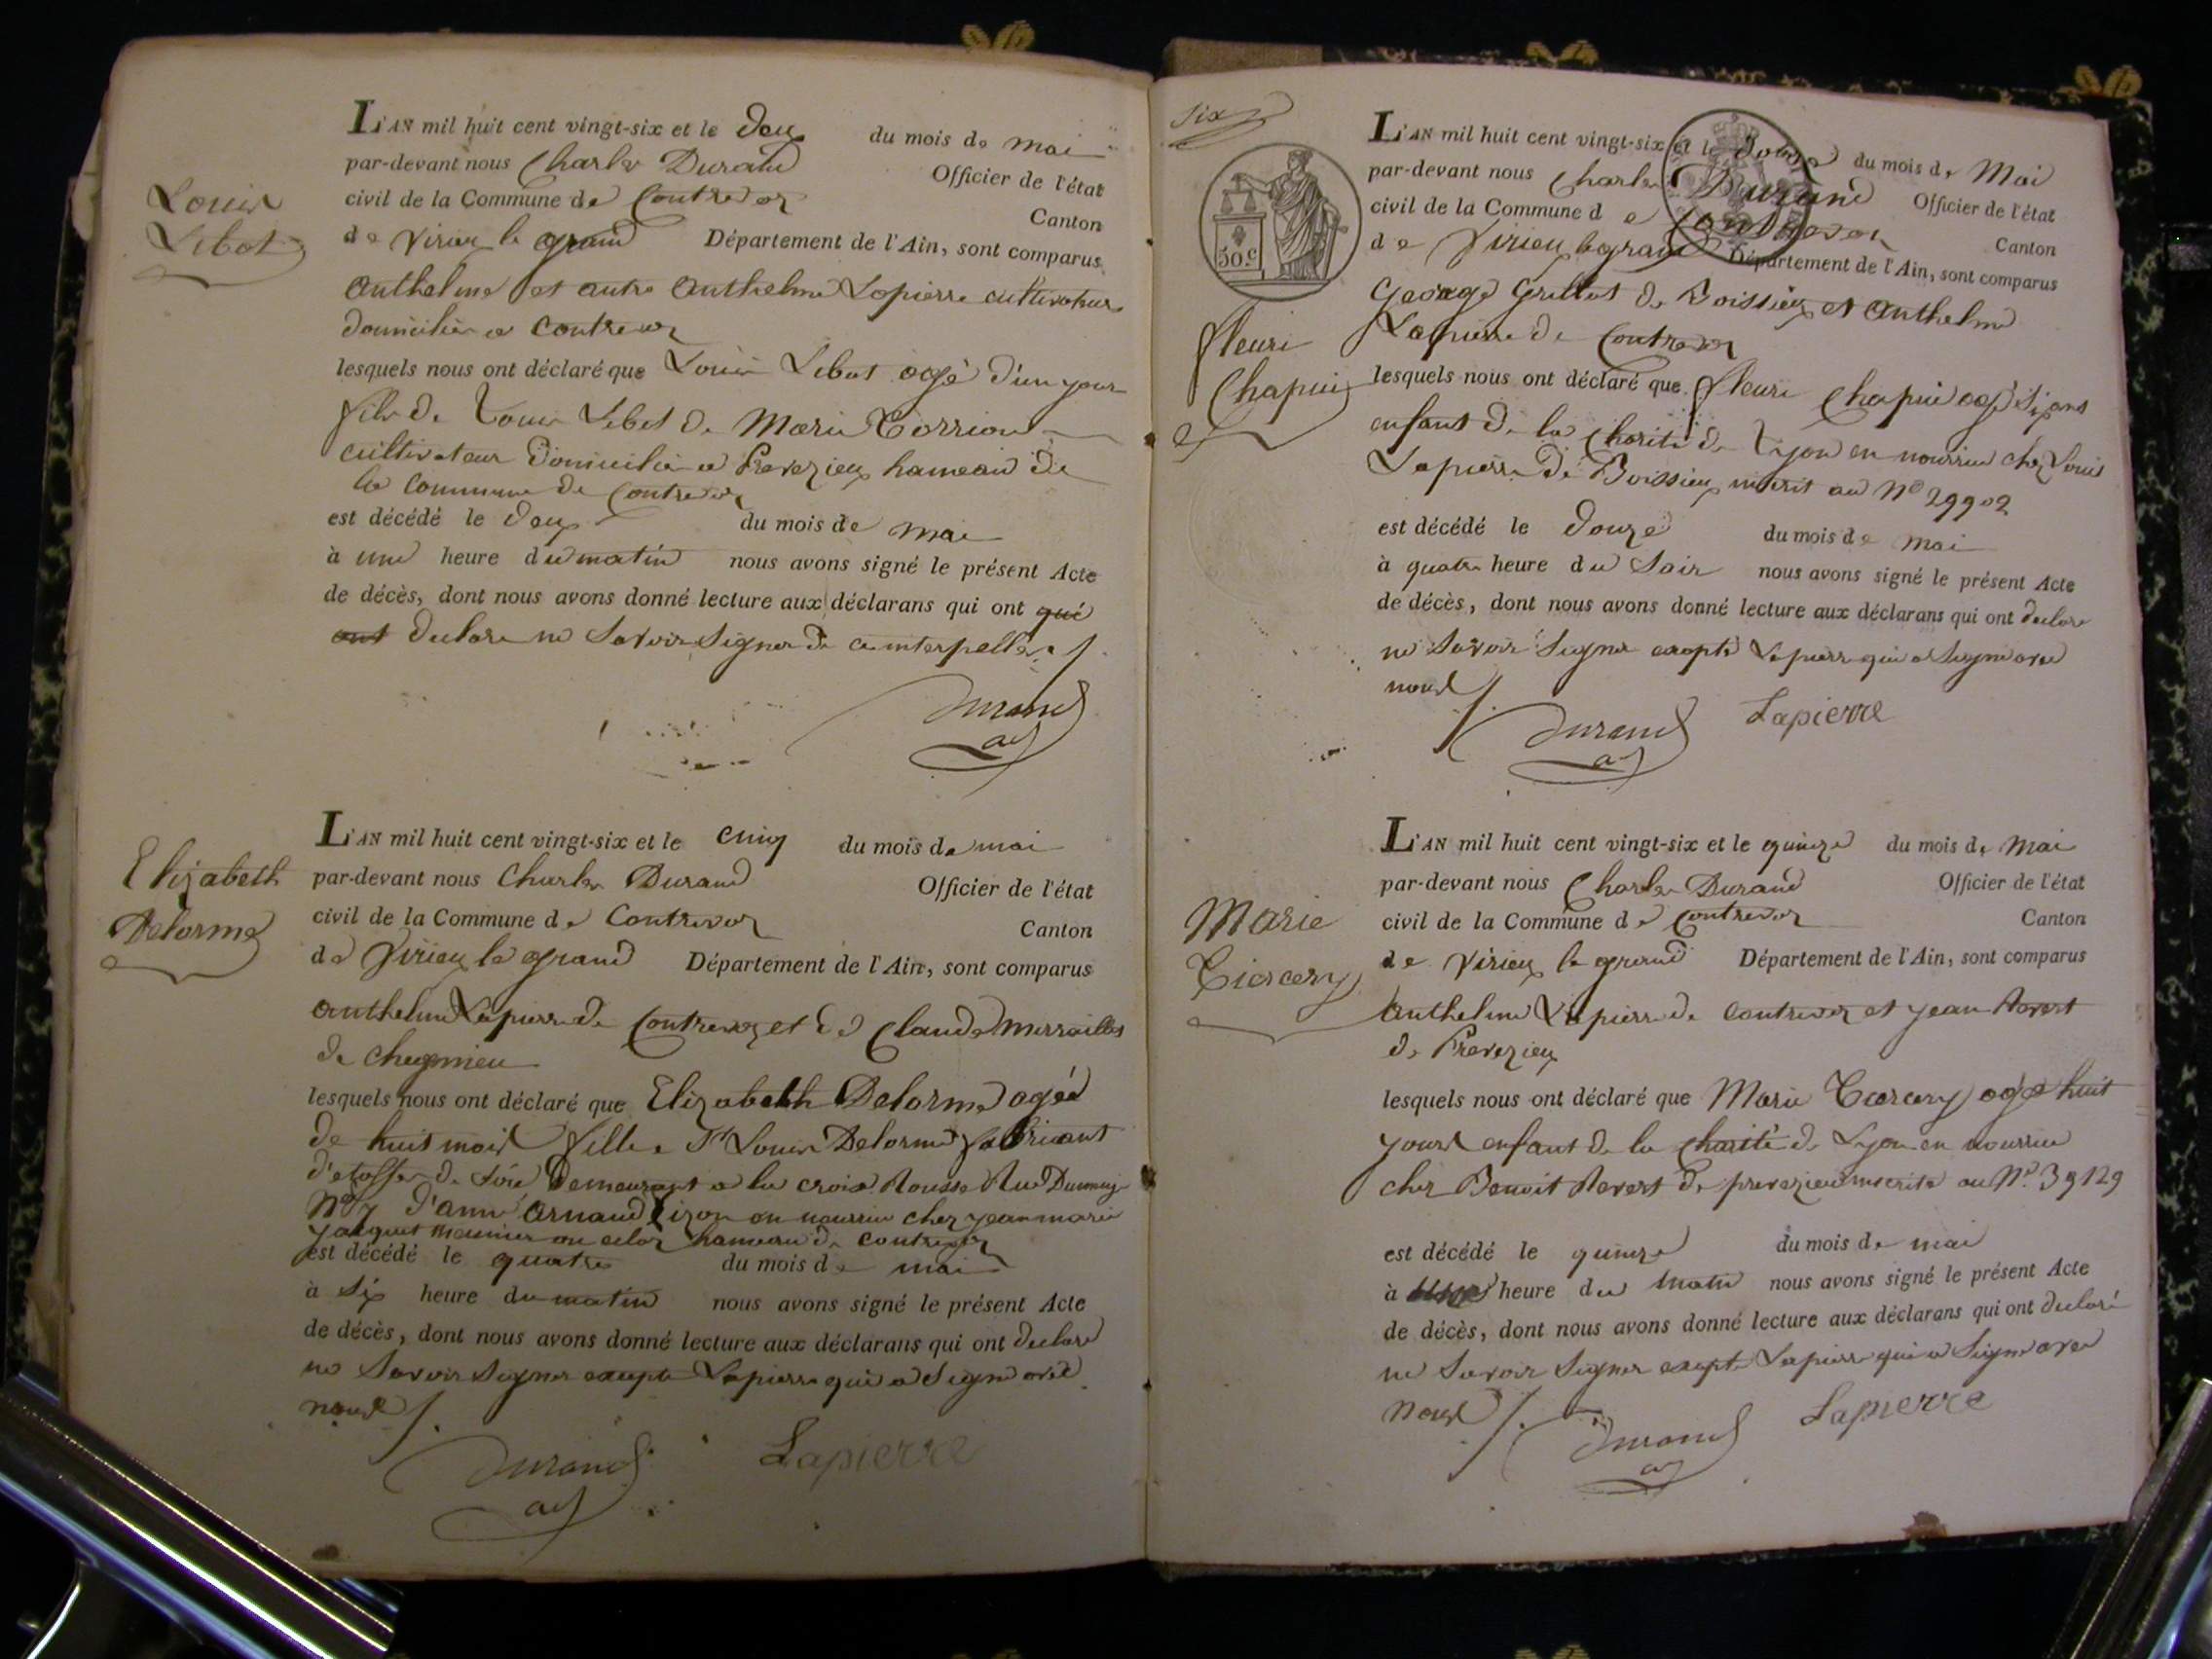 Louis
Lebot
L'AN mil huit cent vingt-six et le deux du mois de mai
par-devant nous Charles Durand Officier de l'état
civil de la Commune de Contrevoz Canton
de Virieu le grand Département de l'Ain, sont comparus
Anthelme et autre Anthelme Lapierre cultivateurs
domiciliés a Contrevoz
lesquels nous ont déclaré que Louis Lebot agé d'un jour
fils de Louis Lebot de Marie
cultivateur domicilié a Prevezieu hameau de
la commune de Contrevoz
est décédé le deux du mois de mai
à une heure du matin nous avons signé le présent Acte
de décès, dont nous avons donné lecture aux déclarans qui ont qui
ont declare ne Savoir Signer de ce interpellés ./.
Durand
Elizabeth
Delorme
L'AN mil huit cent vingt-six et le cinq du mois de mai
par-devant nous Charles Durand Officier de l'état
civil de la Commune de Contrevoz Canton
de Virieu le grand Département de l'Ain, sont comparus
Anthelme Lapierre de Contrevoz et de Claude
de chegnieu
lesquels nous ont déclaré que Elizabeth Delorme agéé
de huit mois fille a St Louis Delorme fabricant
d'etoffes de Soie Demeurant a la croix Rousse Rue
No 7 d'anne Arnaud en nourrice chez jean marie
jacquet meunier hameau de contrevoz
est décédé le quatre du mois de mai
à Six heure du matin nous avons signé le présent Acte
de décès, dont nous avons donné lecture aux déclarans qui ont declaré
ne Savoir Signer excepte Lapierre qui a Signe avec
nous ./.
Durand Lapierre
Six
50.c
fleuri
Chapuis
L'AN mil huit cent vingt-six et le douze du mois de Mai
par-devant nous Charles Durand Officier de l'état
civil de la Commune de Contrevoz Canton
de Virieu le grand Département de l'Ain, sont comparus
George Grillot de Boissieu et Anthelme
Lapierre de Contrevoz
lesquels nous ont déclaré que fleuri Chapui agé Six ans
enfant de la Charité de Lyon en nourrice chez Louis
Lapierre de Boissieu inscrit au No 29902
est décédé le douze du mois de mai
à quatre heure du Soir nous avons signé le présent Acte
de décès, dont nous avons donné lecture aux déclarans qui ont declare
ne Savoir Signer excepté Lapierre qui a Signe avec
nous ./.
Durand Lapierre
Marie
L'AN mil huit cent vingt-six et le quinze du mois de Mai
par-devant nous Charles Durand Officier de l'état
civil de la Commune de Contrevoz Canton
de Virieu le grand Département de l'Ain, sont comparus
Anthelme Lapierre de contrevoz et jean Revert
de Prevezieu
lesquels nous ont déclaré que Marie agé huit
jours enfant de la charité de Lyon en nourrice
chez Benoit Revert de prevezieu inscrite au No. 39129
est décédé le quinze du mois de mai
à heure du matin nous avons signé le présent Acte
de décès, dont nous avons donné lecture aux déclarans qui ont declaré
ne Savoir Signer excepte Lapierre qui a Signe avec
nous ./.
Durand Lapierre